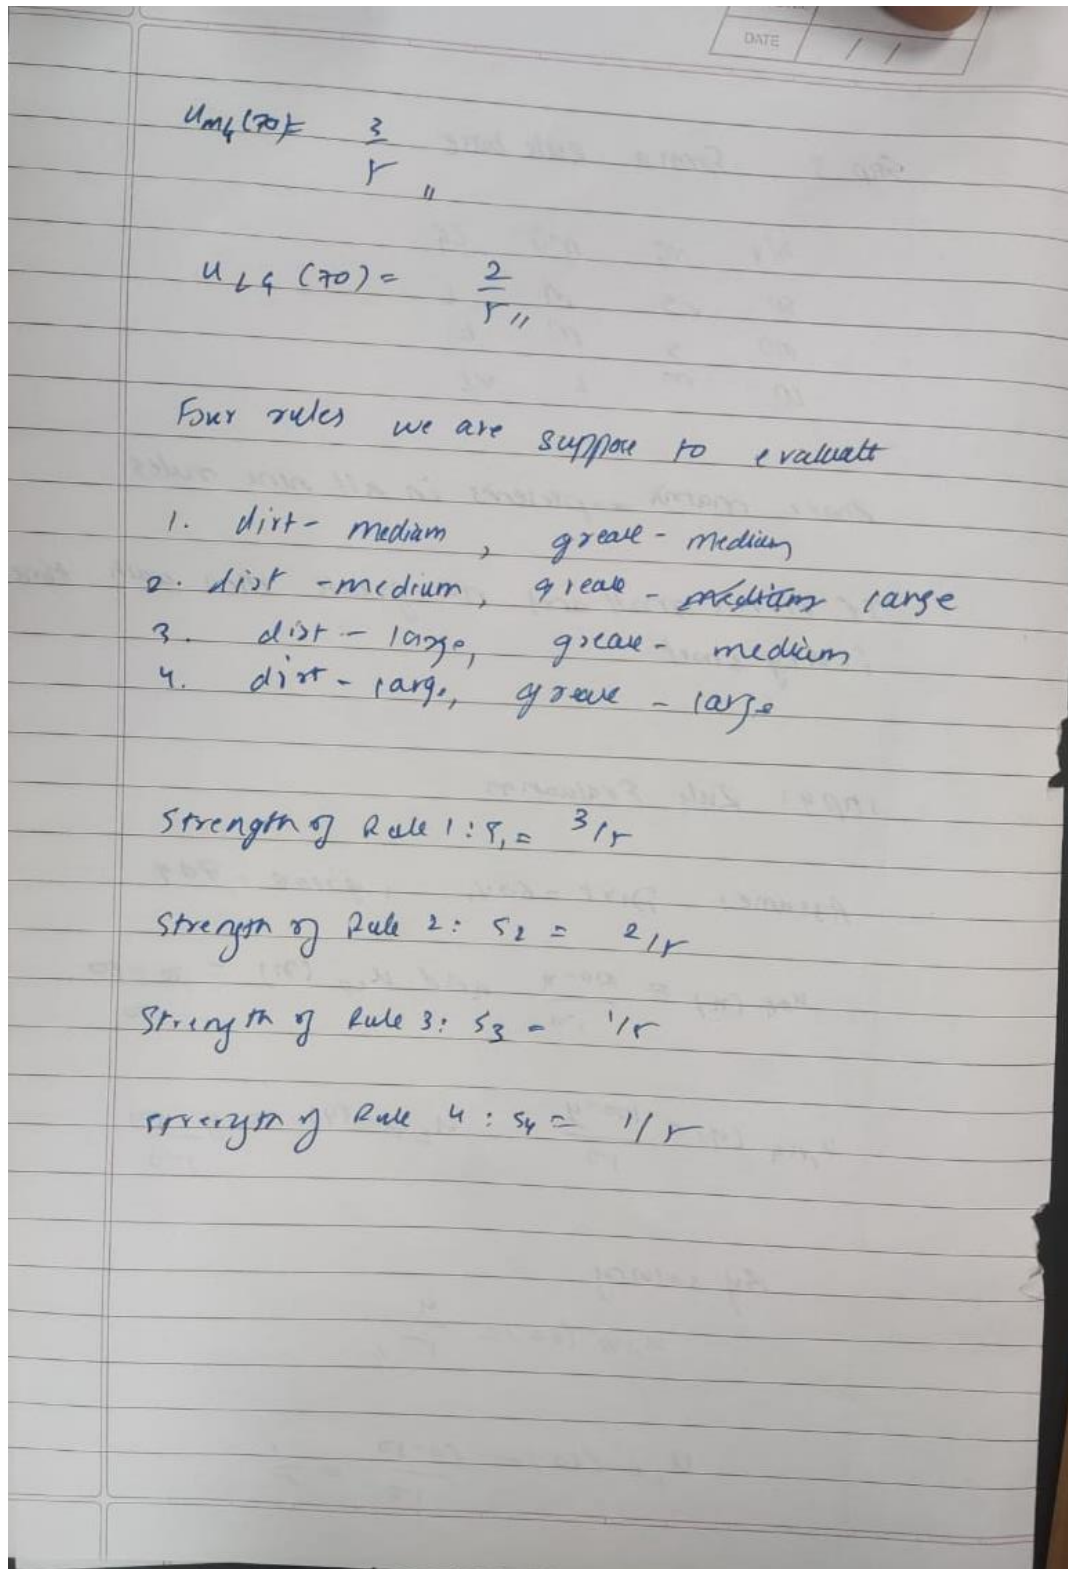 DATE / /
μMG(70) = 3/5 "
μLG (70) = 2/5 "
Four rules we are suppose to evaluatt
1. dirt - medium, grease - medium
2. dirt - medium, grease - large
3. dirt - large, grease - medium
4. dirt - large, grease - large
Strength of Rule 1 : S1 = 3/5
Strength of Rule 2 : S2 = 2/5
Strength of Rule 3 : S3 = 1/5
Strength of Rule 4 : S4 = 1/5